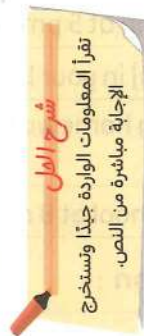 شرح الحل
تقرأ المعلومات الواردة جيدًا وتستخرج
الإجابة مباشرة من النص.